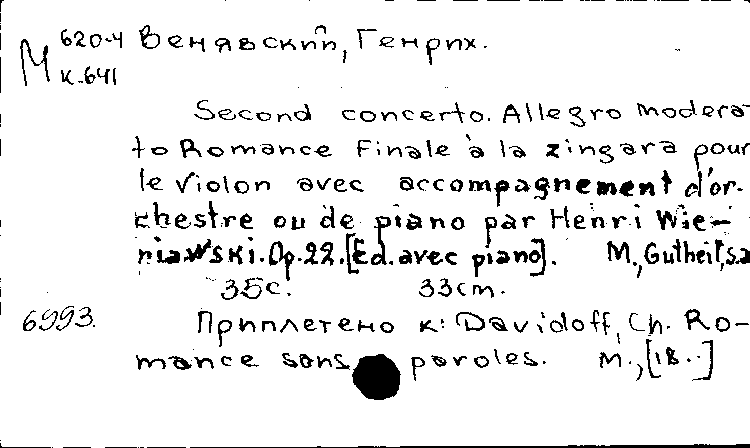 М 620-4 Венявский, Генрих.
к-641
Second concerto. Allegro modera-
to Romance Finale à la zingara pour
le violon avec accompagnement d'or-
chestre ou de piano par Henri Wie-
niawski. Op. 22. [Ed. avec piano]. M., Gutheil, s.a
35 с. 33 cm.
6993. Приплетено к: Davidoff, Ch. Ro-
mance sans paroles. M., [18..]